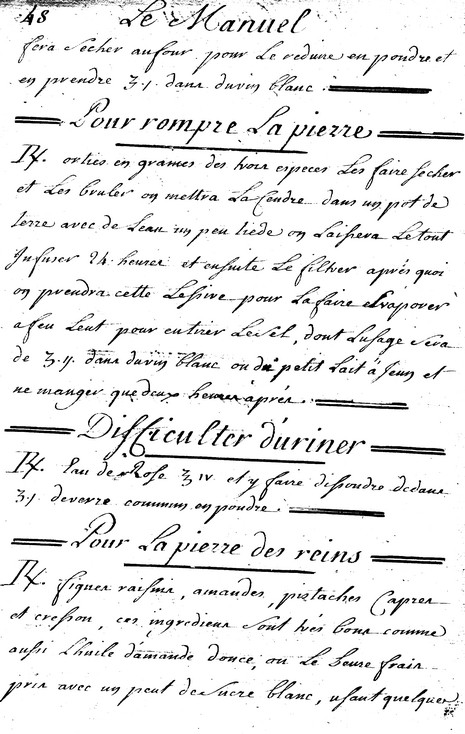 48 Le Manuel
sera Secher aufour pour Le reduire en poudre et
en prendre ʒ.j. dans duvin blanc.
Pour rompre La pierre
R/. orties en graines des trois especes Les faire Secher
et Les bruler on mettra La Cendre dans un pot de
terre avec de Leau un peu tiède on Laissera Letout
Infuser 24. heures et ensuite Le filtrer aprés quoi
on prendra cette Lessive pour La faire Evaporer
afeu Lent pour entirer LeSel, dont Lusage Sera
de ʒ.ij. dans duvin blanc ou du petit Lait à Jeun et
ne manger que deux heures aprés.
Difficulter d'uriner
R/. Eau de Rose ʒ IV et y faire dissoudre dedans
ʒ.j. deverre commun en poudre.
Pour La pierre des reins
R/. figues raisins, amandes, pistaches Capres
et cresson, ces ingrediens Sont tres bons comme
aussi Lhuile damande douce, ou Le beure frais
pris avec un peut deSucre blanc, usant quelques